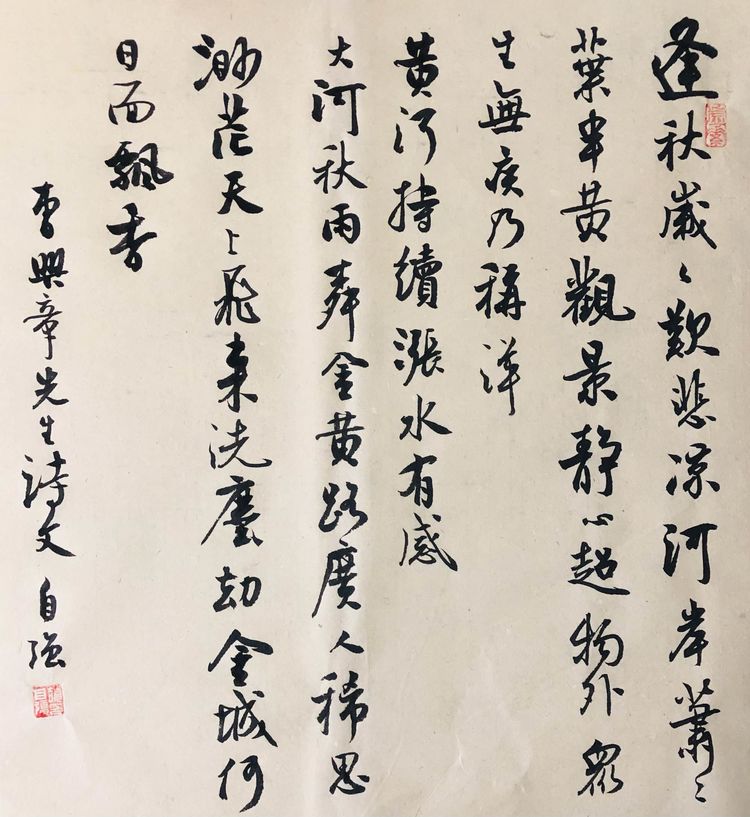 逢秋歲々歎悲涼河岸蕭々
葉半黄觀景靜心超物外衆
生無疾乃稱祥
黄河持續漲水有感
大河秋雨舞金黄路廣人稀思
渺茫天上飛来洗塵劫金城何
日而飄香
曹興章先生詩文 自强